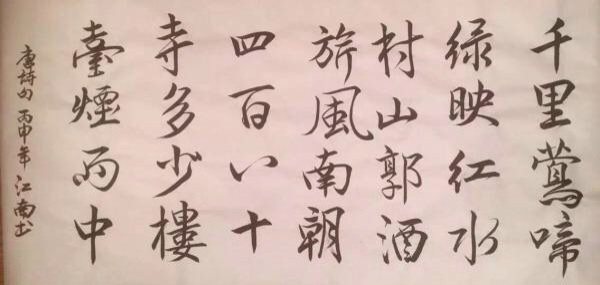 千里鶯啼
绿映红水
村山郭酒
旂風南朝
四百八十
寺多少樓
臺煙雨中
唐诗句 丙申年 江南书